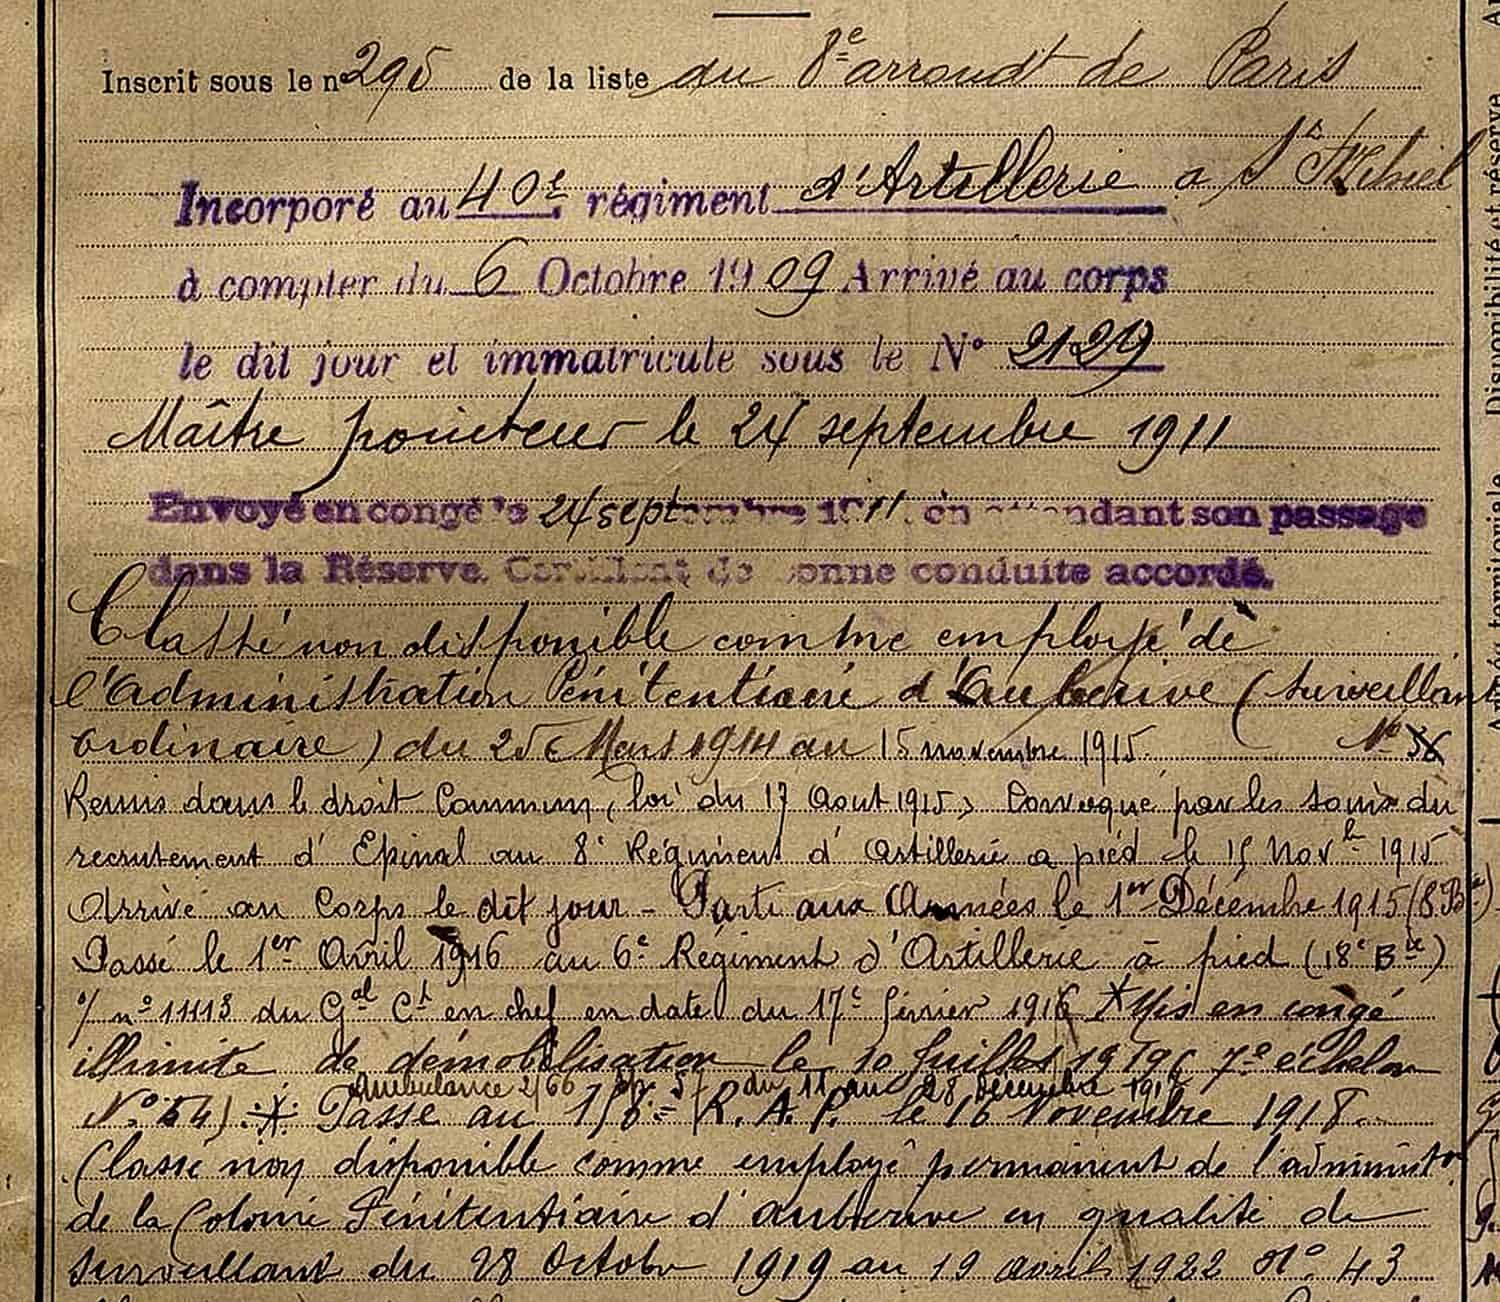 Inscrit sous le n° 295 de la liste du 8e arrondt de Paris
Incorporé au 40e régiment d'Artillerie a St Mihiel
à compter du 6 Octobre 1909 Arrivé au corps
le dit jour et immatriculé sous le N° 2129
Maître pointeur le 24 septembre 1911
Envoyé en congé le 24 septembre 1911 en attendant son passage
dans la Réserve. Certificat de bonne conduite accordé.
Classé non disponible comme employé de
l'Administration Pénitentiaire d'Auberive (surveillant
ordinaire) du 25 Mars 1914 au 15 novembre 1915. N°
Remis dans le droit Commun, (loi du 17 Aout 1915) Convoqué par les soins du
recrutement d'Epinal au 8e Régiment d'Artillerie a pied le 15 Novbre 1915
Arrivé au Corps le dit jour - Parti aux Armées le 1er Décembre 1915 (8 Bie)
Passé le 1er Avril 1916 au 6e Régiment d'Artillerie à pied (18e Bie)
n° 11113 du Gal Ct en chef en date du 17e février 1916 * Mis en congé
illimité de démobilisation le 10 Juillet 1919 7e échelon
Ambulance 2/66 du 11 au 28 décembre
N° 54) * Passé au R. A. P. le 16 Novembre 1918.
Classé non disponible comme employé permanent de l'administon
de la Colonie Pénitentiaire d'auberive en qualité de
surveillant du 28 octobre 1919 au 19 avril 1922 N° 43
Disponibilité et réserve
Armée territoriale